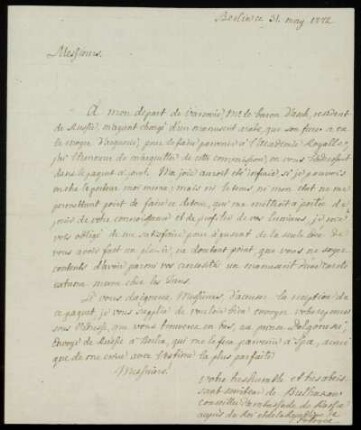 Berlin ce 31. may 1772
Messieurs
A mon depart de Varsovie, Mr. le baron d'Asch, resident
de Russie, m'ayant chargé d'un manuscrit arabe, que son frere a eu
pour le faire parvenir à l'Academie Royalle,
j'ai l'honneur de m'acquitter de cette commission, en vous l'adressant
dans le paquet si joint. Ma joie auroit été si je pouvois
en etre le porteur moi meme; mais ni le tems, ni mon etat ne me
permettent point de faire ce detour, qui me mettroit à portée de
jouir de votre connoissance et de profiter de vos lumieres, je me
vois obligé de me satisfaire pour à present de la seule idée de
vous avoir fait un plaisir, en doutant point, que vous ne soyez
contents d'avoir parmi vos un manuscrit d'une rareté
meme chez les
Si vous daignerez, Messieurs, d'accuser la reception de
ce paquet, je vous supplie de vouloir bien envoyer votre reponse
sous l'adresse, au prince Dolgorouki,
Envoyé de Russie à Berlin, qui me la fera parvenir à Spa, ainsi
que de me croire avec l'estime la plus parfaite
Messieurs
votre tres humble et tres obeis
sant serviteur de
conseiller d'ambassade de Russie
auprès du Roi et de la Republique de
Pologne